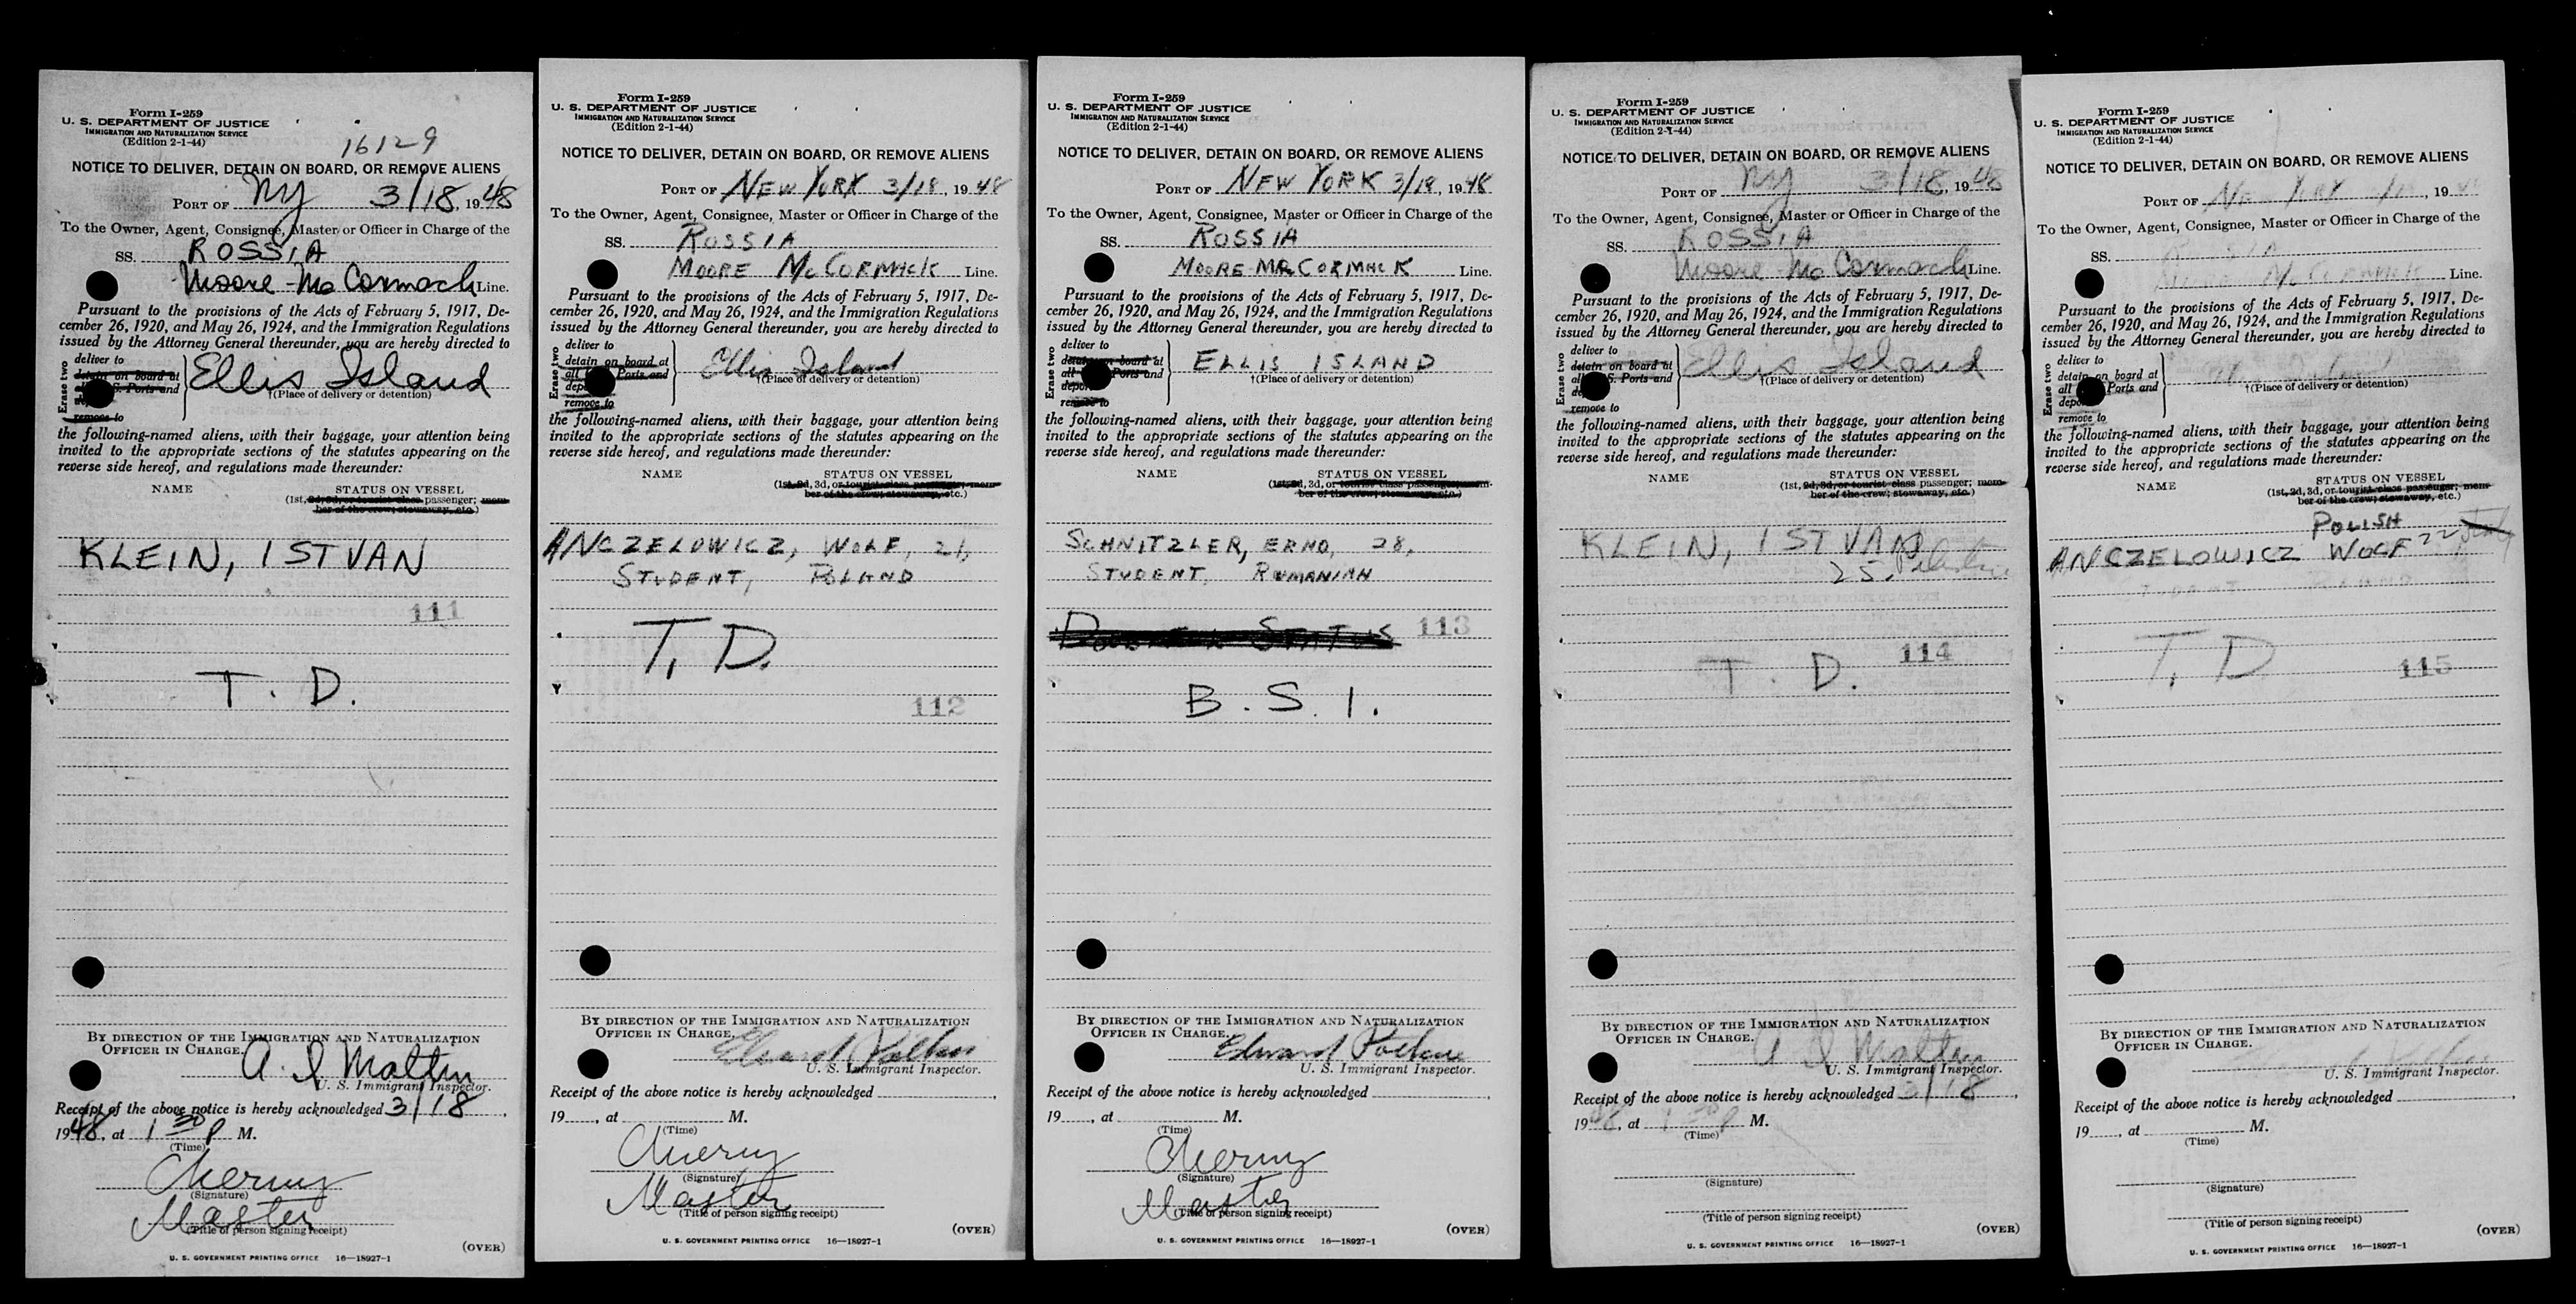 Form I-259
U. S. DEPARTMENT OF JUSTICE
IMMIGRATION AND NATURALIZATION SERVICE
(Edition 2-1-44)
16129
NOTICE TO DELIVER, DETAIN ON BOARD, OR REMOVE ALIENS
PORT OF NY 3/18, 1948
To the Owner, Agent, Consignee, Master or Officer in Charge of the
SS. ROSSIA
Moore-McCormack Line.
Pursuant to the provisions of the Acts of February 5, 1917, De-
cember 26, 1920, and May 26, 1924, and the Immigration Regulations
issued by the Attorney General thereunder, you are hereby directed to
Erase two
deliver to
detain on board at
all U. S. Ports and
remove to
Ellis Island
†(Place of delivery or detention)
the following-named aliens, with their baggage, your attention being
invited to the appropriate sections of the statutes appearing on the
reverse side hereof, and regulations made thereunder:
NAME STATUS ON VESSEL
(1st, 2d, 3d, or tourist class passenger; mem-
ber of the crew; stowaway, etc.)
KLEIN, ISTVAN
111
T. D.
BY DIRECTION OF THE IMMIGRATION AND NATURALIZATION
OFFICER IN CHARGE.
A. I Maltin
U. S. Immigrant Inspector.
Receipt of the above notice is hereby acknowledged 3/18,
1948, at 1 30 P M.
(Time)
Cherny
(Signature)
Master
(Title of person signing receipt)
(OVER)
U. S. GOVERNMENT PRINTING OFFICE 16—18927-1
Form I-259
U. S. DEPARTMENT OF JUSTICE
IMMIGRATION AND NATURALIZATION SERVICE
(Edition 2-1-44)
NOTICE TO DELIVER, DETAIN ON BOARD, OR REMOVE ALIENS
PORT OF NEW YORK 3/18, 1948
To the Owner, Agent, Consignee, Master or Officer in Charge of the
SS. ROSSIA
MOORE McCORMACK Line.
Pursuant to the provisions of the Acts of February 5, 1917, De-
cember 26, 1920, and May 26, 1924, and the Immigration Regulations
issued by the Attorney General thereunder, you are hereby directed to
Erase two
deliver to
detain on board at
all Ports and
remove to
Ellis Island
†(Place of delivery or detention)
the following-named aliens, with their baggage, your attention being
invited to the appropriate sections of the statutes appearing on the
reverse side hereof, and regulations made thereunder:
NAME STATUS ON VESSEL
(1st, 2d, 3d, or tourist class passenger; mem-
ber of the crew; stowaway, etc.)
ANCZELOWICZ, WOLF, 21,
STUDENT, POLAND
T. D.
112
BY DIRECTION OF THE IMMIGRATION AND NATURALIZATION
OFFICER IN CHARGE.
U. S. Immigrant Inspector.
Receipt of the above notice is hereby acknowledged
19, at M.
(Time)
Cherny
(Signature)
Master
(Title of person signing receipt)
(OVER)
U. S. GOVERNMENT PRINTING OFFICE 16—18927-1
Form I-259
U. S. DEPARTMENT OF JUSTICE
IMMIGRATION AND NATURALIZATION SERVICE
(Edition 2-1-44)
NOTICE TO DELIVER, DETAIN ON BOARD, OR REMOVE ALIENS
PORT OF NEW YORK 3/18, 1948
To the Owner, Agent, Consignee, Master or Officer in Charge of the
SS. ROSSIA
MOORE-McCORMACK Line.
Pursuant to the provisions of the Acts of February 5, 1917, De-
cember 26, 1920, and May 26, 1924, and the Immigration Regulations
issued by the Attorney General thereunder, you are hereby directed to
Erase two
deliver to
detain on board at
all Ports and
remove to
ELLIS ISLAND
†(Place of delivery or detention)
the following-named aliens, with their baggage, your attention being
invited to the appropriate sections of the statutes appearing on the
reverse side hereof, and regulations made thereunder:
NAME STATUS ON VESSEL
(1st, 2d, 3d, or tourist class passenger; mem-
ber of the crew; stowaway, etc.)
SCHNITZLER, ERNO, 28,
STUDENT, RUMANIAN
113
B. S. I.
BY DIRECTION OF THE IMMIGRATION AND NATURALIZATION
OFFICER IN CHARGE.
Edward
U. S. Immigrant Inspector.
Receipt of the above notice is hereby acknowledged
19, at M.
(Time)
Cherny
(Signature)
Master
(Title of person signing receipt)
(OVER)
U. S. GOVERNMENT PRINTING OFFICE 16—18927-1
Form I-259
U. S. DEPARTMENT OF JUSTICE
IMMIGRATION AND NATURALIZATION SERVICE
(Edition 2-1-44)
NOTICE TO DELIVER, DETAIN ON BOARD, OR REMOVE ALIENS
PORT OF NY 3/18, 1948
To the Owner, Agent, Consignee, Master or Officer in Charge of the
SS. ROSSIA
Moore-McCormack Line.
Pursuant to the provisions of the Acts of February 5, 1917, De-
cember 26, 1920, and May 26, 1924, and the Immigration Regulations
issued by the Attorney General thereunder, you are hereby directed to
Erase two
deliver to
detain on board at
all U. S. Ports and
remove to
Ellis Island
†(Place of delivery or detention)
the following-named aliens, with their baggage, your attention being
invited to the appropriate sections of the statutes appearing on the
reverse side hereof, and regulations made thereunder:
NAME STATUS ON VESSEL
(1st, 2d, 3d, or tourist class passenger; mem-
ber of the crew; stowaway, etc.)
KLEIN, ISTVAN
25,
114
T. D.
BY DIRECTION OF THE IMMIGRATION AND NATURALIZATION
OFFICER IN CHARGE.
A I Maltin
U. S. Immigrant Inspector.
Receipt of the above notice is hereby acknowledged 3/18,
1948, at 1 30 P M.
(Time)
(Signature)
(Title of person signing receipt)
(OVER)
U. S. GOVERNMENT PRINTING OFFICE 16—18927-1
Form I-259
U. S. DEPARTMENT OF JUSTICE
IMMIGRATION AND NATURALIZATION SERVICE
(Edition 2-1-44)
NOTICE TO DELIVER, DETAIN ON BOARD, OR REMOVE ALIENS
PORT OF NEW YORK, 19
To the Owner, Agent, Consignee, Master or Officer in Charge of the
SS.
McCORMACK Line.
Pursuant to the provisions of the Acts of February 5, 1917, De-
cember 26, 1920, and May 26, 1924, and the Immigration Regulations
issued by the Attorney General thereunder, you are hereby directed to
Erase two
deliver to
detain on board at
all Ports and
remove to
†(Place of delivery or detention)
the following-named aliens, with their baggage, your attention being
invited to the appropriate sections of the statutes appearing on the
reverse side hereof, and regulations made thereunder:
NAME STATUS ON VESSEL
(1st, 2d, 3d, or tourist class passenger; mem-
ber of the crew; stowaway, etc.)
POLISH
ANCZELOWICZ WOLF 22
STUDENT POLAND
T. D.
115
BY DIRECTION OF THE IMMIGRATION AND NATURALIZATION
OFFICER IN CHARGE.
U. S. Immigrant Inspector.
Receipt of the above notice is hereby acknowledged
19, at M.
(Time)
(Signature)
(Title of person signing receipt)
(OVER)
U. S. GOVERNMENT PRINTING OFFICE 16—18927-1